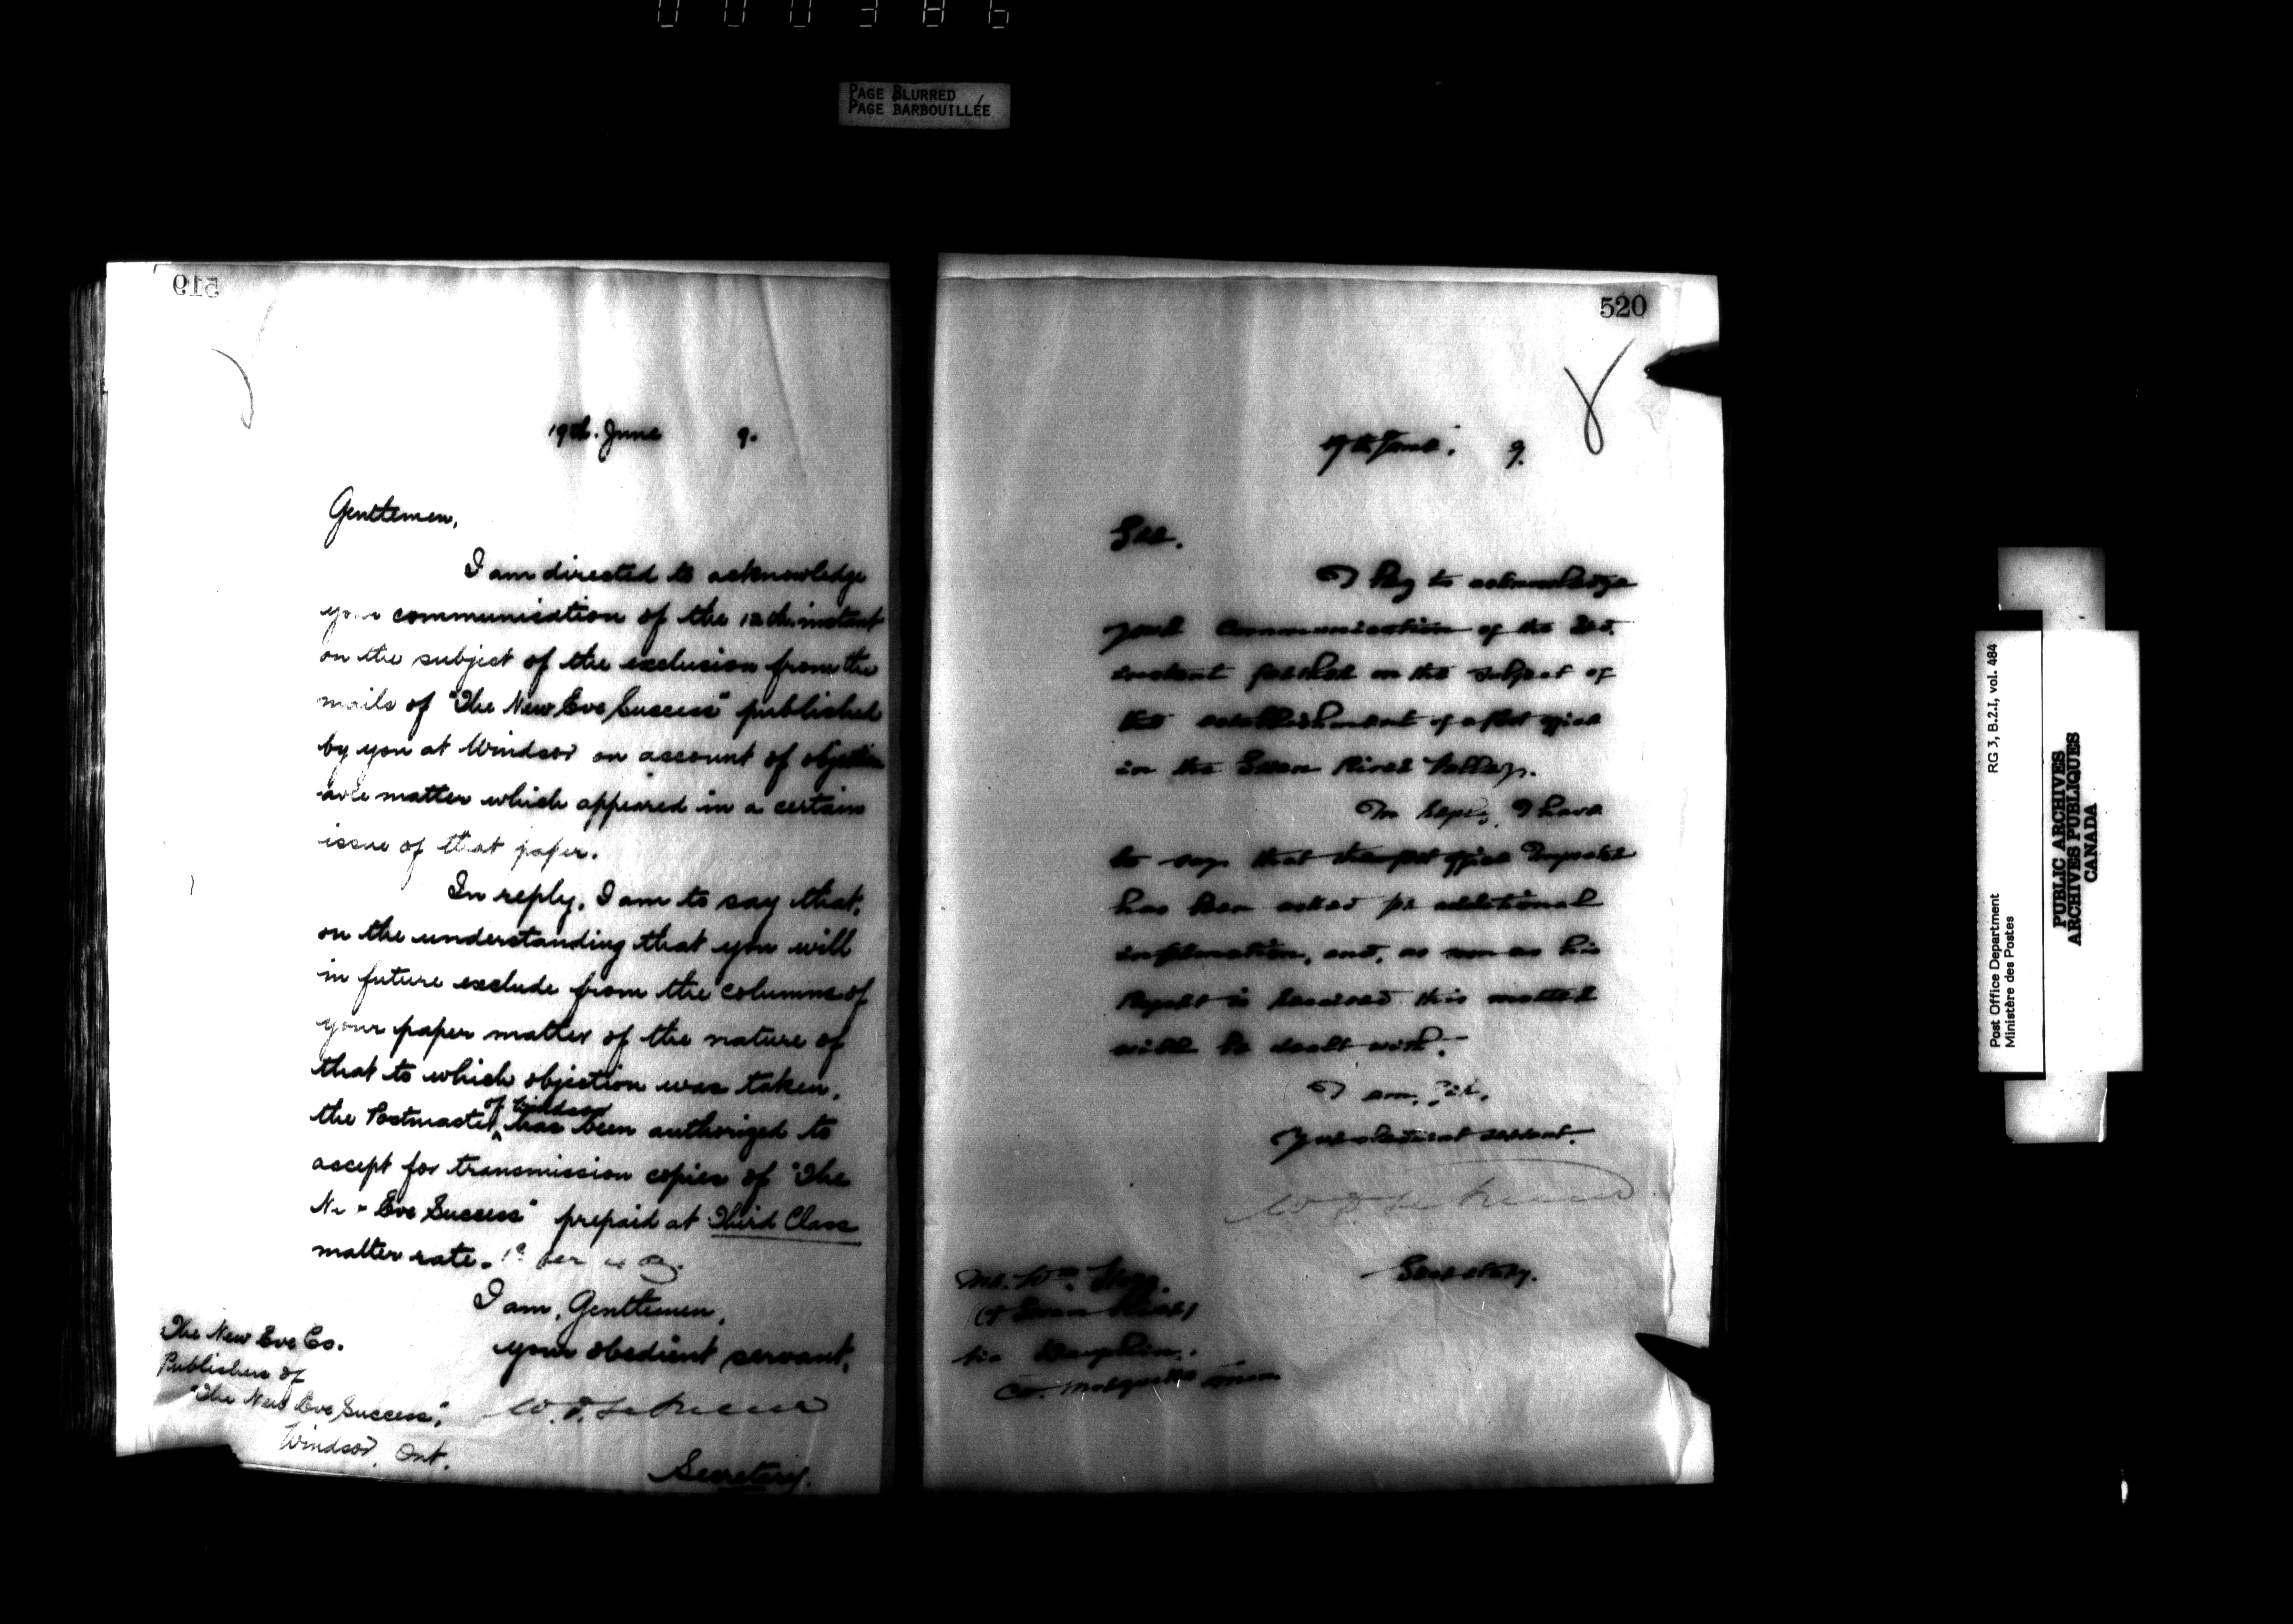 000386
PAGE BLURRED
PAGE BARBOUILLÉE
519
19th. June 9.
Gentlemen,
I am directed to acknowledge
your communication of the 12th. instant
on the subject of the exclusion from the
mails of "The New Eve Success" published
by you at Windsor on account of objection
able matter which appeared in a certain
issue of that paper.
In reply, I am to say that,
on the understanding that you will
in future exclude from the columns of
your paper matter of the nature of
that to which objection was taken,
of Windsor
the Postmaster has been authorized to
accept for transmission copies of "The
New Eve Success" prepaid at Third Class
matter rate. 1c per 4 oz.
I am, Gentlemen,
your obedient servant,
Secretary.
The New Eve Co.
Publishers of
"The New Eve Success",
Windsor, Ont.
520
June. 9.
Sir.
I beg to acknowledge
your communication of the
instant further on the subject of
the establishment of a Post Office
in the Swan River Valley.
In reply, I have
to say that the Post Office Inspector
has been asked for additional
information, and, as soon as his
report is received this matter
will be dealt with.
I am, Sir,
Your obedient servant.
Secretary.
Mr. Wm.
(of Swan River)
via Dauphin,
Co. Marquette Man.
Post Office Department
Ministère des Postes
RG 3, B.2.I, vol. 484
PUBLIC ARCHIVES
ARCHIVES PUBLIQUES
CANADA